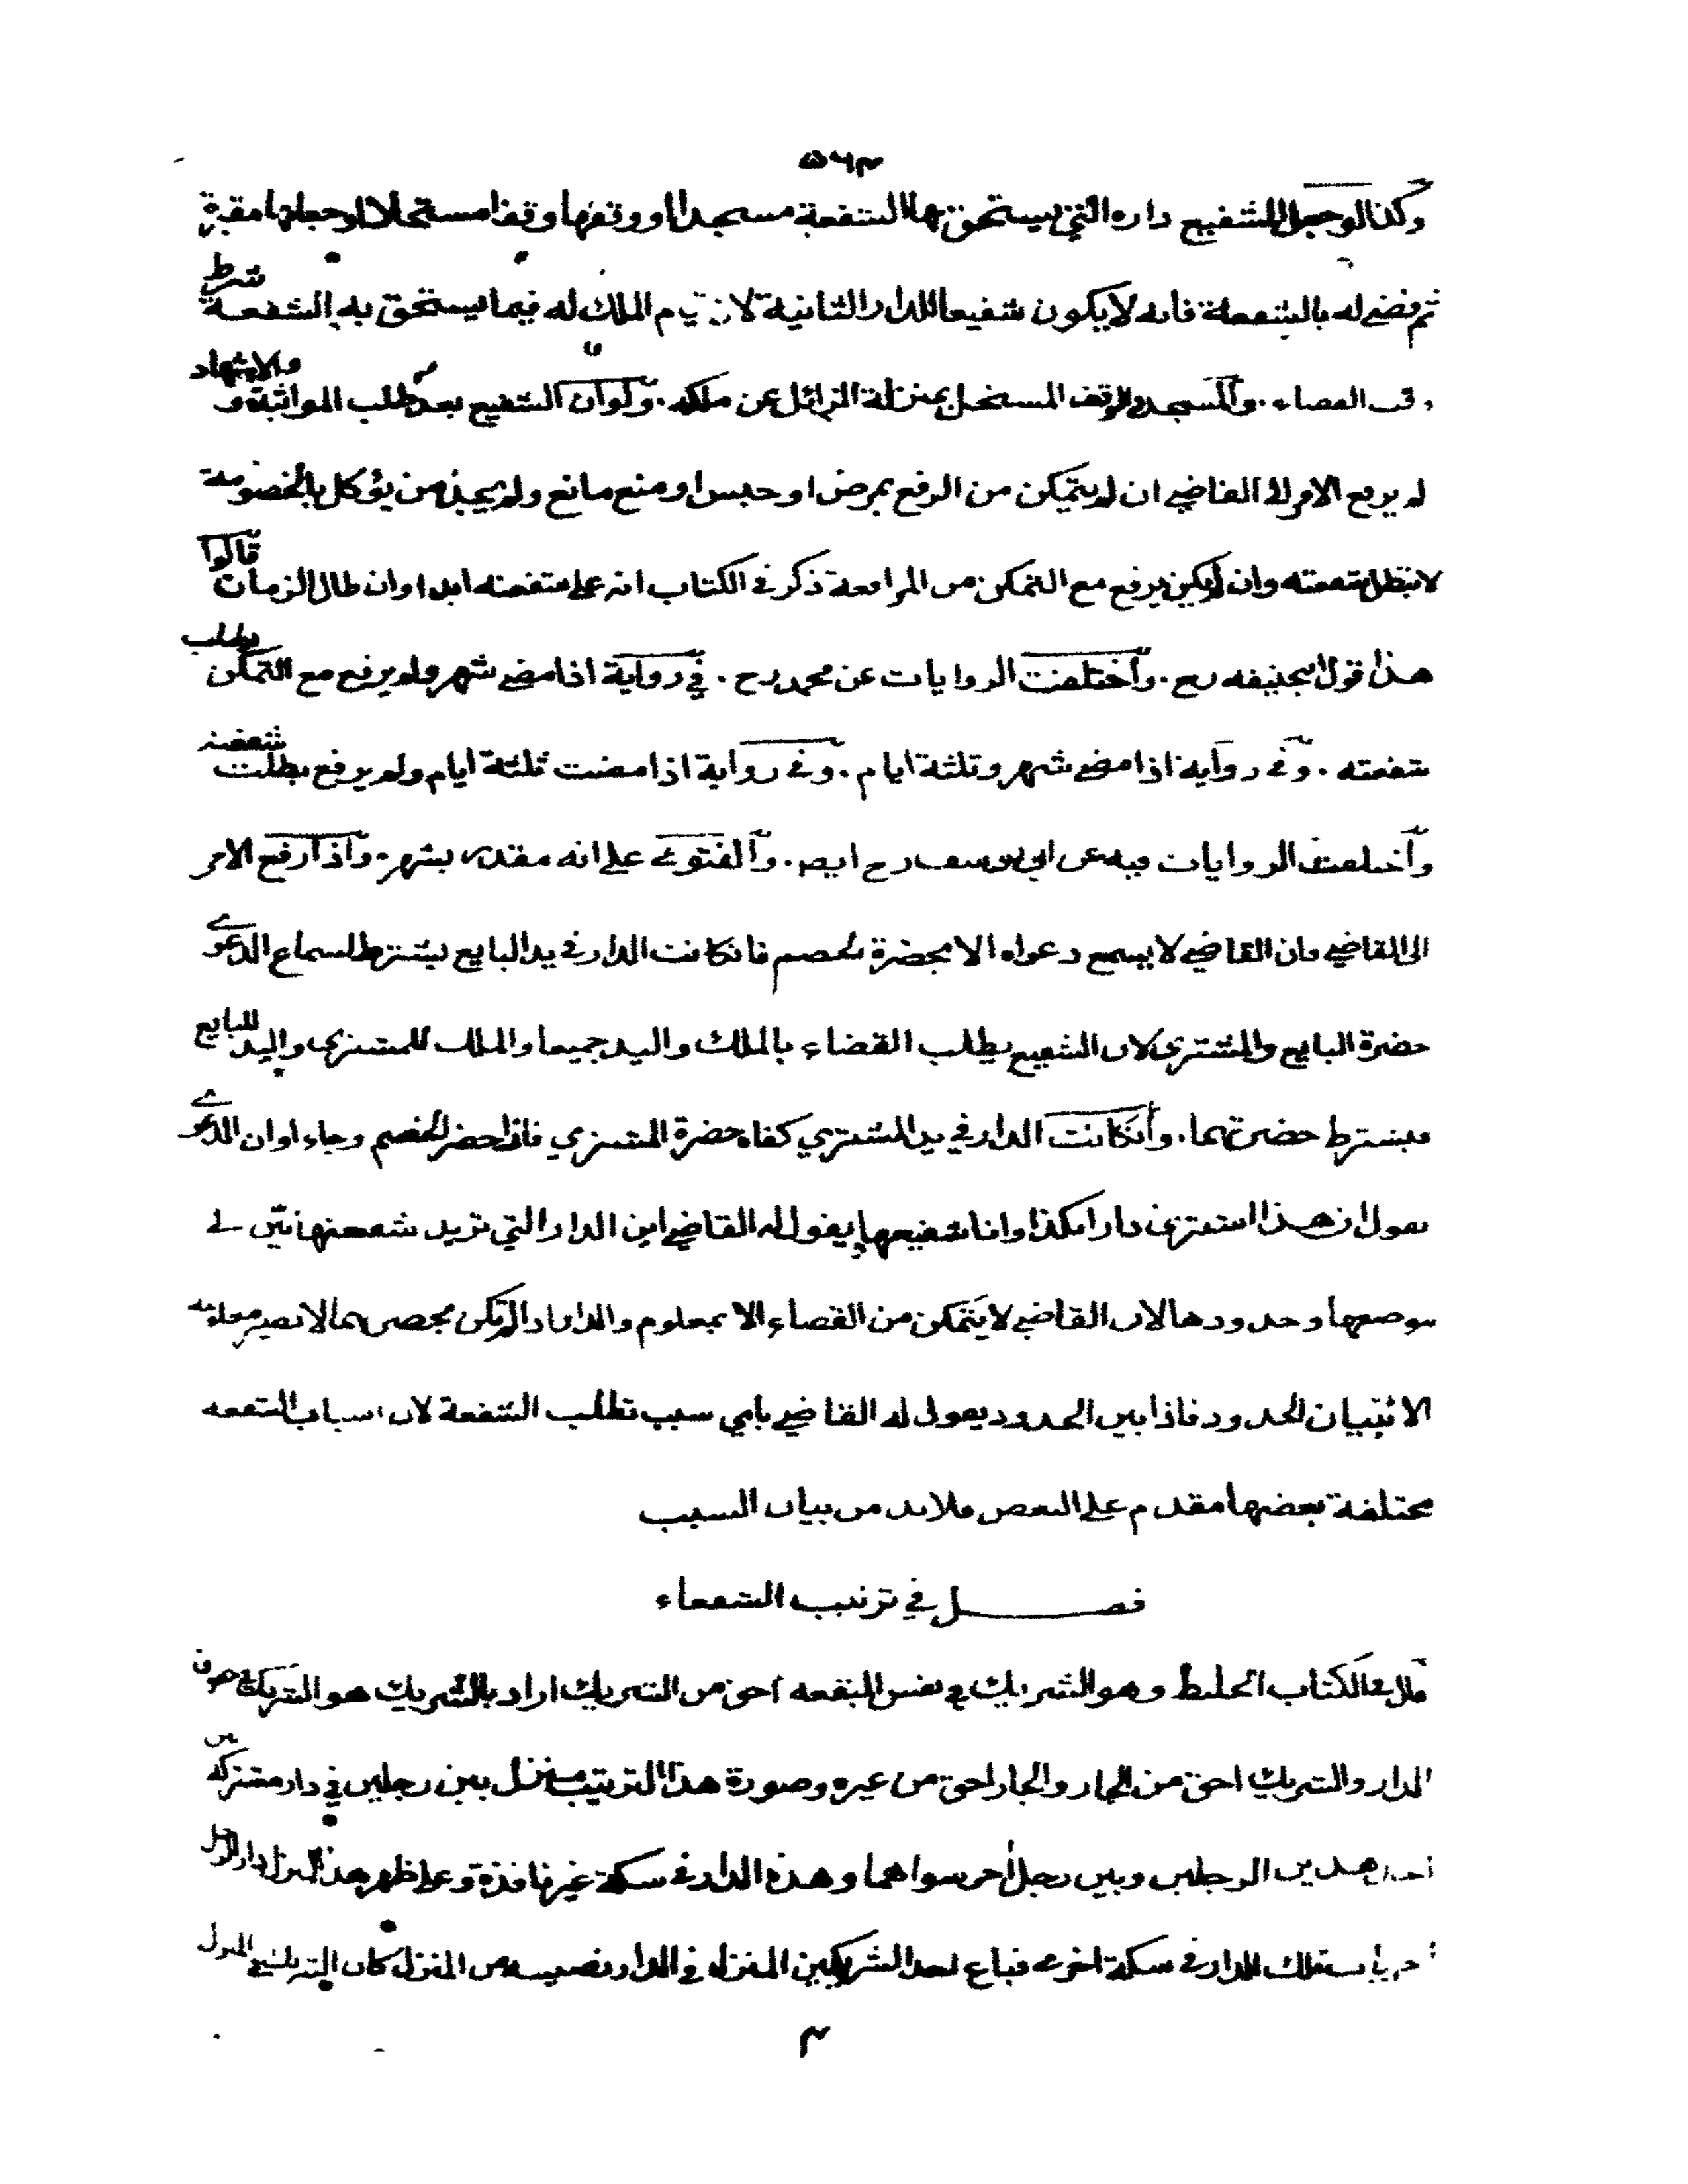 ٥٦٣
وكذا لو جعل الشفيع داره التي يستحق بها الشفعة مسجدا او وقفها وقفا مستحلا او جعلها مقبرة
ثم قضى له بالشفعة فانه لا يكون شفيعا للدار الثانية لان قيام الملك له فيما يستحق به الشفعة شرط
وقت القضاء . والمسجد والوقف المسبحل بمنزلة الزائل عن ملكه . ولو ان الشفيع بعد طلب المواثبة و والاشهاد
لم يرفع الامر الى القاضي ان لم يتمكن من الرفع بمرض او حبس او منع مانع ولم يجد من يؤكل بالخصومة
لا تبطل شفعته وان لم يكن يرفع مع التمكن من المرافعة ذكر في الكتاب انه على شفعته ابدا وان طال الزمان قالوا
هذا قول ابيحنيفه رح . واختلفت الروايات عن محمد رح . في رواية اذا مضى شهر ولم يرفع مع التمكن بطلت
شفعته . وفي رواية اذا مضى شهر وثلثة ايام . وفي رواية اذا مضت ثلثة ايام ولم يرفع بطلت شفعته
واختلفت الروايات فيه عن ابي يوسف رح ايضا . والفتوى على انه مقدر بشهر . واذا رفع الامر
الى القاضي فان القاضي لا يسمع دعواه الا بحضرة الخصم فانكانت الدار في يد البايع يشترط لسماع الدعوى
حضرة البايع والمشتري لان الشفيع يطلب القضاء بالملك واليد جميعا والملك للمشتري واليد للبايع
فيشترط حضرتهما . وانكانت الدار في يد المشتري كفاه حضرة المشتري فاذا حضر الخصم وجاء اوان الدعوى
يقول ان هذا اشترى دارا بكذا وانا شفيعها يقول له القاضي اين الدار التي تريد شفعتها بيّن لي
موضعها وحدودها لان القاضي لا يتمكن من القضاء الا بمعلوم والدار اذا لم تكن بحضرتهما لا تصير معلومة
الا بتبيان الحدود فاذا بين الحدود يقول له القاضي باي سبب تطلب الشفعة لان اسباب الشفعه
مختلفة بعضها مقدم على البعض فلا بد من بيان السبب
فصل في ترتيب الشفعاء
قال في الكتاب الخليط وهو الشريك في نفس البقعه احق من الشريك اراد بالشريك هو الشريك في حقوق
الدار والشريك احق من الجار والجار احق من غيره وصورة هذا الترتيب منزل بين رجلين في دار مشتركة بين
احد هذين الرجلين وبين رجل آخر سواهما وهذه الدار في سكة غير نافذة وعلى ظهر هذا المنزل دار لرجل
آخر باب تلك الدار في سكة اخرى فباع احد الشريكين المنزل في الدار نصيبه من المنزل كان الشريك في المنزل
٣